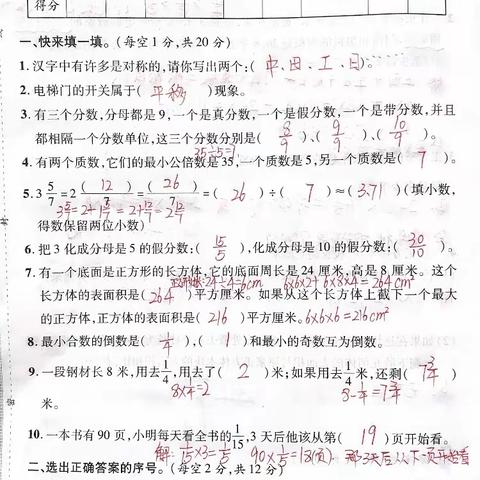 得分
一、快来填一填。(每空1分,共20分)
1.汉字中有许多是对称的,请你写出两个:( 中、田、工、日)。
2.电梯门的开关属于( 平移 )现象。
3.有三个分数,分母都是9,一个是真分数,一个是假分数,一个是带分数,并且
都相隔一个分数单位,这三个分数分别是( 8/9 )、( 9/9 )、( 10/9 )。
35÷5=7
4.有两个质数,它们的最小公倍数是35,一个质数是5,另一个质数是( 7 )。
5. 3 5/7 = 2 (12)/7 = (26)/7 = ( 26 )÷( 7 )≈( 3.71 )(填小数,
得数保留两位小数)
6.把3化成分母是5的假分数:( 15/5 ),化成分母是10的假分数:( 30/10 )。
7.有一个底面是正方形的长方体,它的底面周长是24厘米,高是8厘米。这个
24÷4=6cm 6×6×2+6×8×4=264cm²
长方体的表面积是( 264 )平方厘米。如果从这个长方体上截下一个最大
的正方体,正方体的表面积是( 216 )平方厘米。6×6×6=216cm²
8.最小合数的倒数是( 1/4 ),( 1 )和最小的奇数互为倒数。
9.一段钢材长8米,用去1/4,用去了( 2 )米;如果用去1/4米,还剩( 7 3/4 )
8×1/4=2 8-1/4=7 3/4
米。
10.一本书有90页,小明每天看全书的1/15,3天后他该从第( 19 )页开始看。
解:1/15×3=1/5 90×1/5=18(页) 3天后从下一页开始看
二、选出正确答案的序号。(每空2分,共12分)